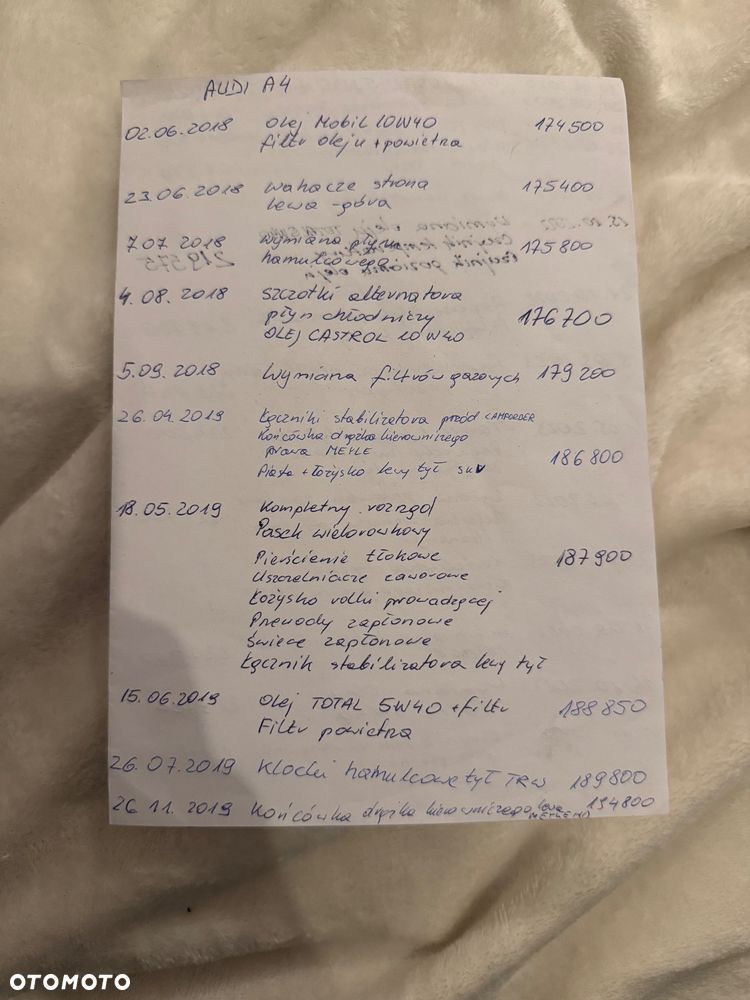 AUDI A4
02.06.2018 Olej Mobil 10W40 174500
filtr oleju + powietrza
23.06.2018 Wahacze strona 175400
lewa - góra
7.07.2018 Wymiana płynu 175800
hamulcowego
4.08.2018 Szczotki alternatora
płyn chłodniczy 176700
OLEJ CASTROL 10W40
5.09.2018 Wymiana filtrów gazowych 179200
26.04.2019 Łączniki stabilizatora przód
Końcówka drążka kierowniczego
prawa MEYLE 186800
Piasta + łożysko lewy tył
18.05.2019 Kompletny rozrząd
Pasek wielorowkowy
Pierścienie tłokowe 187900
Uszczelniacze zaworowe
Łożysko rolki prowadzącej
Przewody zapłonowe
Świece zapłonowe
Łącznik stabilizatora lewy tył
15.06.2019 Olej TOTAL 5W40 + filtr 188850
Filtr powietrza
26.07.2019 Klocki hamulcowe tył TRW 189800
26.11.2019 Końcówka drążka kierowniczego lewa 194800
OTOMOTO